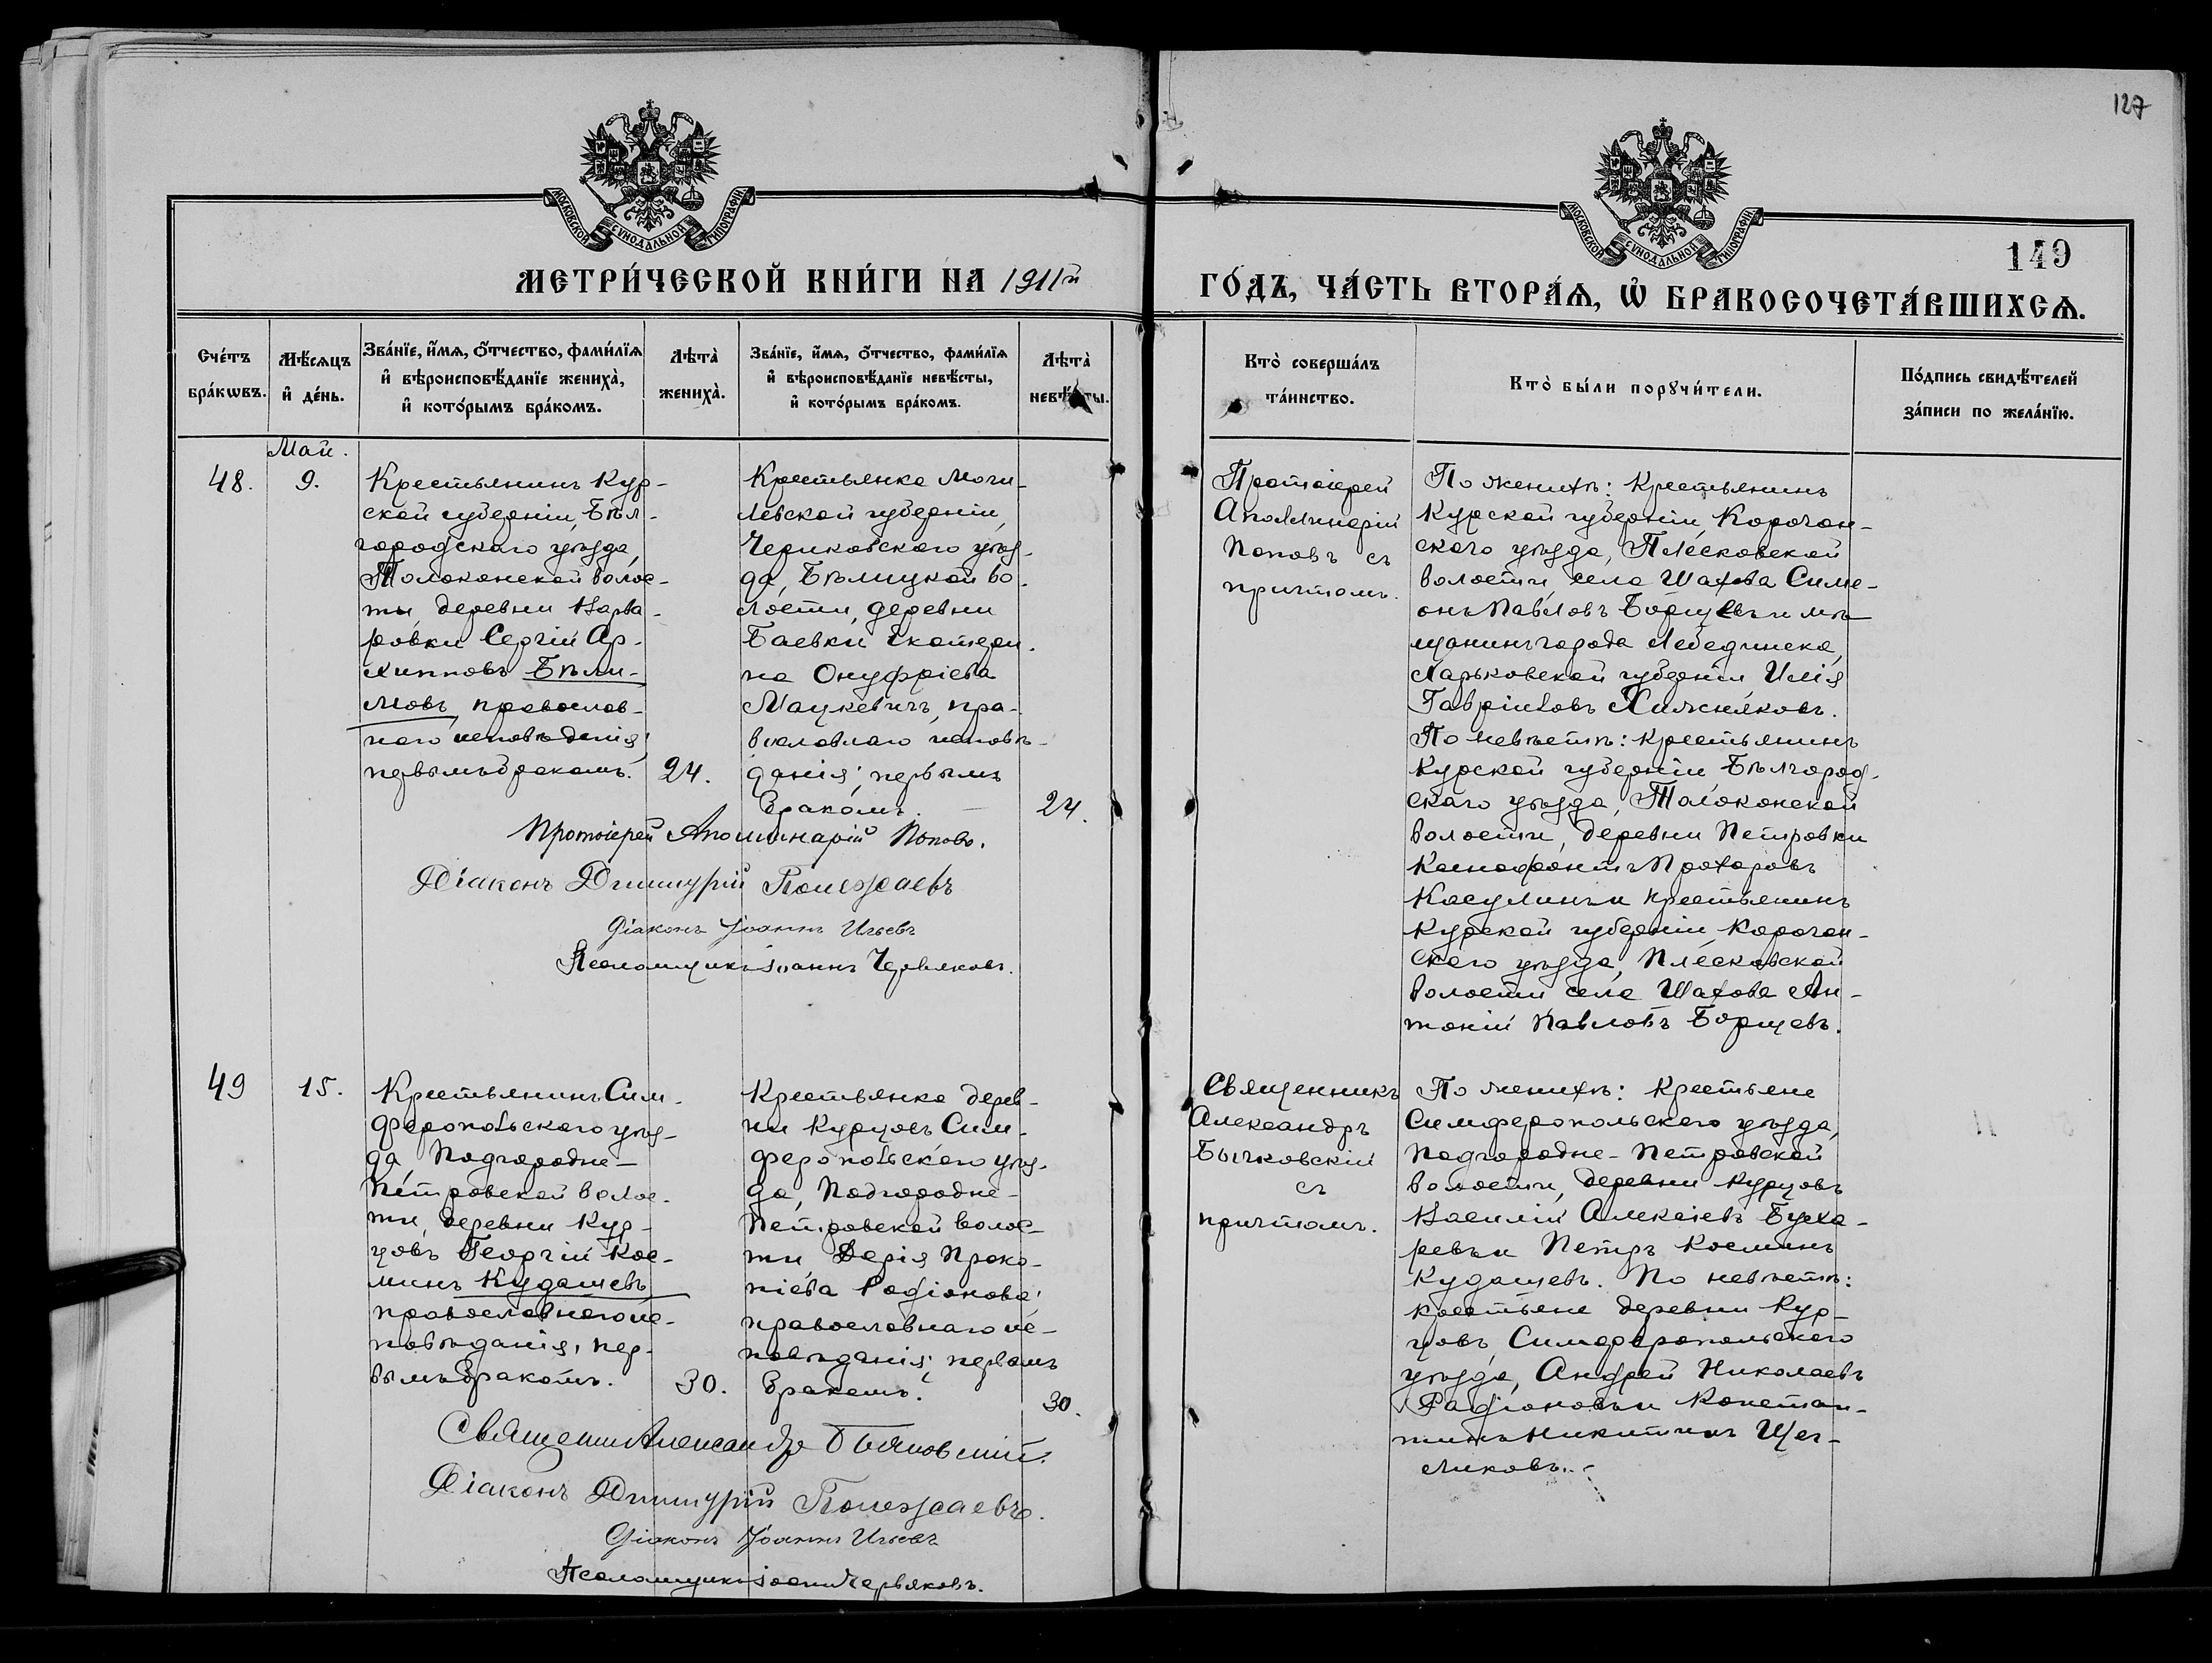 127
149
МОСКОВСКОЙ СѴНОДАЛЬНОЙ ТИПОГРАФІИ.
МОСКОВСКОЙ СѴНОДАЛЬНОЙ ТИПОГРАФІИ.
МЕТРИ́ЧЕСКОЙ КНИ́ГИ НА 1911й
ГО́ДЪ, ЧА́СТЬ ВТОРА́Ѧ, Ѡ҆ БРАКОСОЧЕТА́ВШИХСѦ.
Сче́тъ
бра́кѡвъ.
Мѣ́сѧцъ
и҆ де́нь.
Зва́нїе, и҆́мѧ, о҆́тчество, фами́лїѧ
и҆ вѣроисповѣ́данїе жениха̀,
и҆ кото́рымъ бра́комъ.
Лѣта̀
жениха̀.
Зва́нїе, и҆́мѧ, о҆́тчество, фами́лїѧ
и҆ вѣроисповѣ́данїе невѣ́сты,
и҆ кото́рымъ бра́комъ.
Лѣта̀
невѣ́сты.
Кто̀ соверша́лъ
та́инство.
Кто̀ бы́ли порꙋчи́тели.
По́дпись свидѣ́телей
за́писи по жела́нїю.
Май.
48.
9.
Крестьянинъ Кур-
ской губерніи, Бѣл-
городскаго уѣзда,
Толоконской волос-
ти, деревни Варва-
ровки Сергій Ар-
хипповъ Бѣли-
ловъ, православ-
наго исповѣданія;
первымъ бракомъ.
24.
Крестьянка Моги-
левской губерніи,
Чериковскаго уѣз-
да, Бѣлицкой во-
лости, деревни
Баевки Екатери-
на Онуфріева
Мацкевичъ, пра-
вославнаго исповѣ-
данія; первымъ
бракомъ.
24.
Протоіерей
Аполлинарій
Поповъ съ
причтомъ.
По женихѣ: Крестьянинъ
Курской губерніи, Корочан-
скаго уѣзда, Плесковской
волости, села Шахова Симе-
онъ Павловъ Борщевъ и мѣ-
щанинъ города Лебединска,
Харьковской губерніи, Илія
Гавріиловъ Хижняковъ.
По невѣстѣ: крестьянинъ
Курской губерніи Бѣлгород-
скаго уѣзда, Толоконской
волости, деревни Петровки
Ксенофонтъ Прохоровъ
Касулинъ и крестьянинъ
Курской губерніи Корочан-
скаго уѣзда, Плесковской
волости села Шахова Ан-
тоній Павловъ Борщевъ.
Протоіерей Аполлинарій Поповъ.
Діаконъ Димитрій Полежаевъ
Діаконъ Іоаннъ Ильевъ
Псаломщикъ Іоаннъ Червяковъ.
49
15.
Крестьянинъ Сим-
феропольскаго уѣз-
да, Подгородне-
Петровской волос-
ти, деревни Кур-
цовъ Георгій Кос-
минъ Кудашевъ,
православнаго ис-
повѣданія, пер-
вымъ бракомъ.
30.
Крестьянка дерев-
ни Курцовъ Сим-
феропольскаго уѣз-
да, Подгородне-
Петровской волос-
ти Дарія Проко-
піева Родіонова;
православнаго ис-
повѣданія; первымъ
бракомъ.
30.
Священникъ
Александръ
Бычковскій
съ
причтомъ.
По женихѣ: Крестьяне
Симферопольскаго уѣзда,
Подгородне-Петровской
волости, деревни Курцовъ
Василій Алексіевъ Бухва-
ревъ и Петръ Косминъ
Кудашевъ. По невѣстѣ:
крестьяне деревни Кур-
цовъ, Симферопольскаго
уѣзда, Андрей Николаевъ
Радіоновъ и Констан-
тинъ Никитинъ Щег-
ликовъ.
Священник Александр Бычковский.
Діаконъ Димитрій Полежаевъ.
Діаконъ Іоаннъ Ильевъ
Псаломщикъ Іоаннъ Червяковъ.